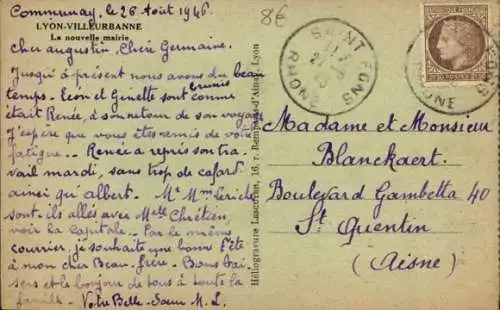 Communay, le 26 Août 1946.
LYON-VILLEURBANNE
La nouvelle mairie
Cher augustin, Chère Germaine.
Jusqu'à présent nous avons du beau
temps. Léon et Ginette sont brunis comme
était Renée, à son retour de son voyage
J'espère que vous êtes remis de votre
fatigue... Renée a repris son tra-
vail mardi, sans trop de cafard
ainsi qu'albert. Mr Mme
sont-ils allés avec Melle Chrétien,
voir la Capitale... Par le même
courrier, je souhaite une bonne fête
à mon cher Beau-frère. Bons bai-
sers et le bonjour de tous à toute la
famille. Votre Belle-Soeur M. L.
Héliogravure Lescuyer, 16, r. Rempart-d'Ainay, Lyon
8€
SAINT FONS
RHONE
Madame et Monsieur
Blanckaert.
Boulevard Gambetta 40
St Quentin
(Aisne)